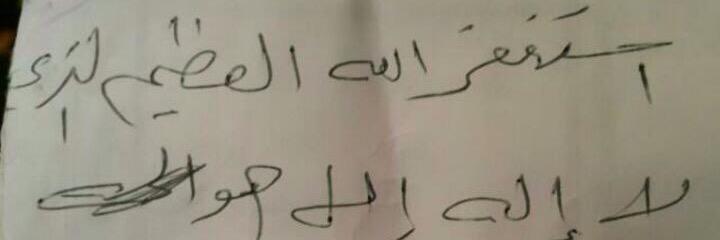 استغفر الله العظيم لذي
لا إله إلا هو